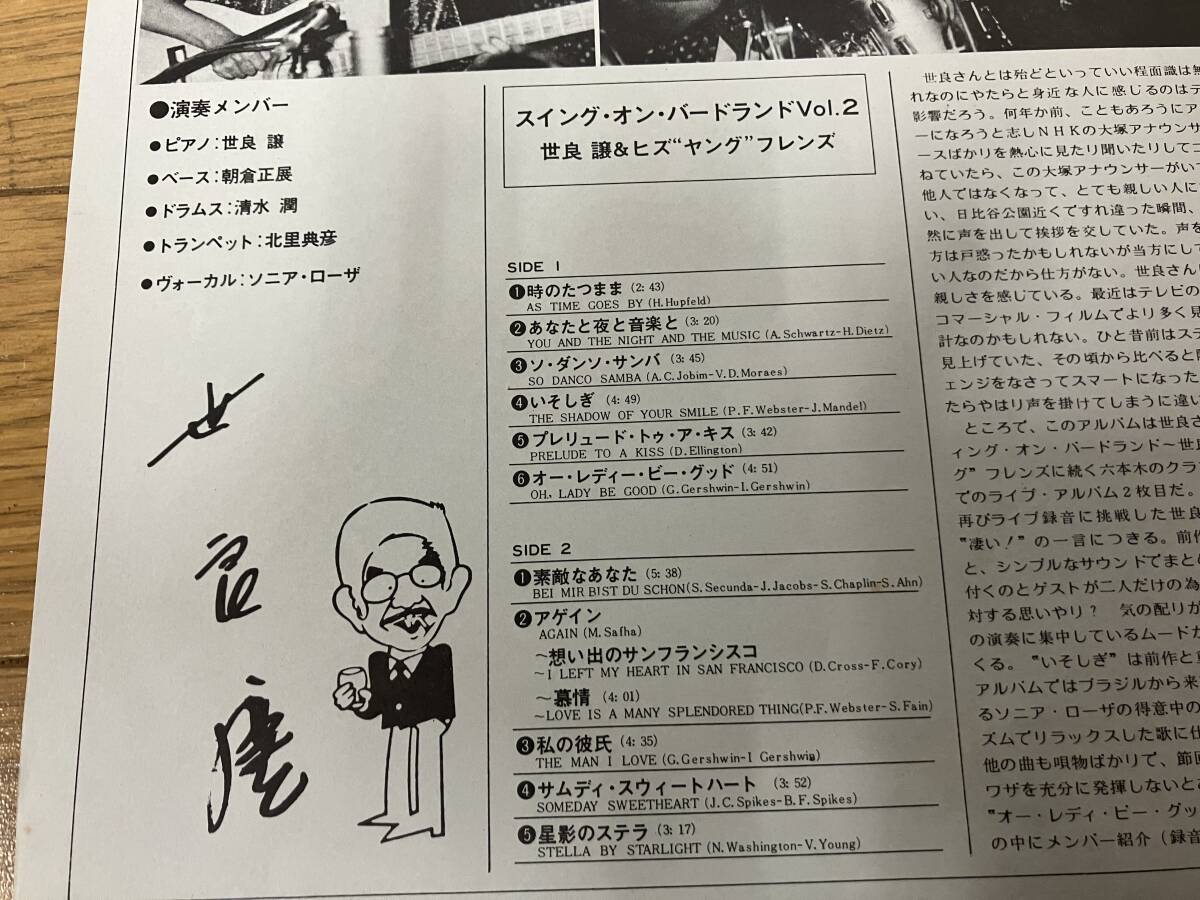 ●演奏メンバー
●ピアノ:世良 譲
●ベース:朝倉正展
●ドラムス:清水 潤
●トランペット:北里典彦
●ヴォーカル:ソニア・ローザ
スイング・オン・バードランドVol.2
世良 譲&ヒズ“ヤング”フレンズ
SIDE 1
❶時のたつまま (2: 43)
AS TIME GOES BY (H.Hupfeld)
❷あなたと夜と音楽と (3: 20)
YOU AND THE NIGHT AND THE MUSIC (A.Schwartz-H.Dietz)
❸ソ・ダンソ・サンバ (3: 45)
SO DANCO SAMBA (A.C.Jobim-V.D.Moraes)
❹いそしぎ (4: 49)
THE SHADOW OF YOUR SMILE (P.F.Webster-J.Mandel)
❺プレリュード・トゥ・ア・キス (3: 42)
PRELUDE TO A KISS (D.Ellington)
❻オー・レディー・ビー・グッド (4: 51)
OH, LADY BE GOOD (G.Gershwin-I.Gershwin)
SIDE 2
❶素敵なあなた (5: 38)
BEI MIR BIST DU SCHON(S.Secunda-J.Jacobs-S.Chaplin-S.Ahn)
❷アゲイン
AGAIN (M.Safha)
~想い出のサンフランシスコ
~I LEFT MY HEART IN SAN FRANCISCO (D.Cross-F.Cory)
~慕情 (4: 01)
~LOVE IS A MANY SPLENDORED THING(P.F.Webster-S.Fain)
❸私の彼氏 (4: 35)
THE MAN I LOVE (G.Gershwin-I Gershwin)
❹サムディ・スウィートハート (3: 52)
SOMEDAY SWEETHEART (J.C.Spikes-B.F.Spikes)
❺星影のステラ (3: 17)
STELLA BY STARLIGHT (N.Washington-V.Young)
世良譲
世良さんとは殆どといっていい程面識は無
れなのにやたらと身近な人に感じるのはテ
影響だろう。何年か前、こともあろうにア
ーになろうと志しNHKの大塚アナウンサ
ースばかりを熱心に見たり聞いたりしてコ
ねていたら、この大塚アナウンサーがい
他人ではなくなって、とても親しい人に
い、日比谷公園近くですれ違った瞬間、
然に声を出して挨拶を交していた。声を
方は戸惑ったかもしれないが当方にして
い人なのだから仕方がない。世良さん
親しさを感じている。最近はテレビの
コマーシャル・フィルムでより多く見
計なのかもしれない。ひと昔前はステ
見上げていた、その頃から比べると
ェンジをなさってスマートになった
たらやはり声を掛けてしまうに違い
ところで、このアルバムは世良さ
ィング・オン・バードランド~世良
グ”フレンズに続く六本木のクラ
でのライブ・アルバム2枚目だ。
再びライブ録音に挑戦した世良
“凄い!”の一言につきる。前作
と、シンプルなサウンドでまとめ
付くのとゲストが二人だけの為
対する思いやり? 気の配りが
の演奏に集中しているムードが
くる。“いそしぎ”は前作と
アルバムではブラジルから来
るソニア・ローザの得意中の
ズムでリラックスした歌に仕
他の曲も唄物ばかりで、節回
ワザを充分に発揮しないと
“オー・レディ・ビー・グッ
の中にメンバー紹介(録音